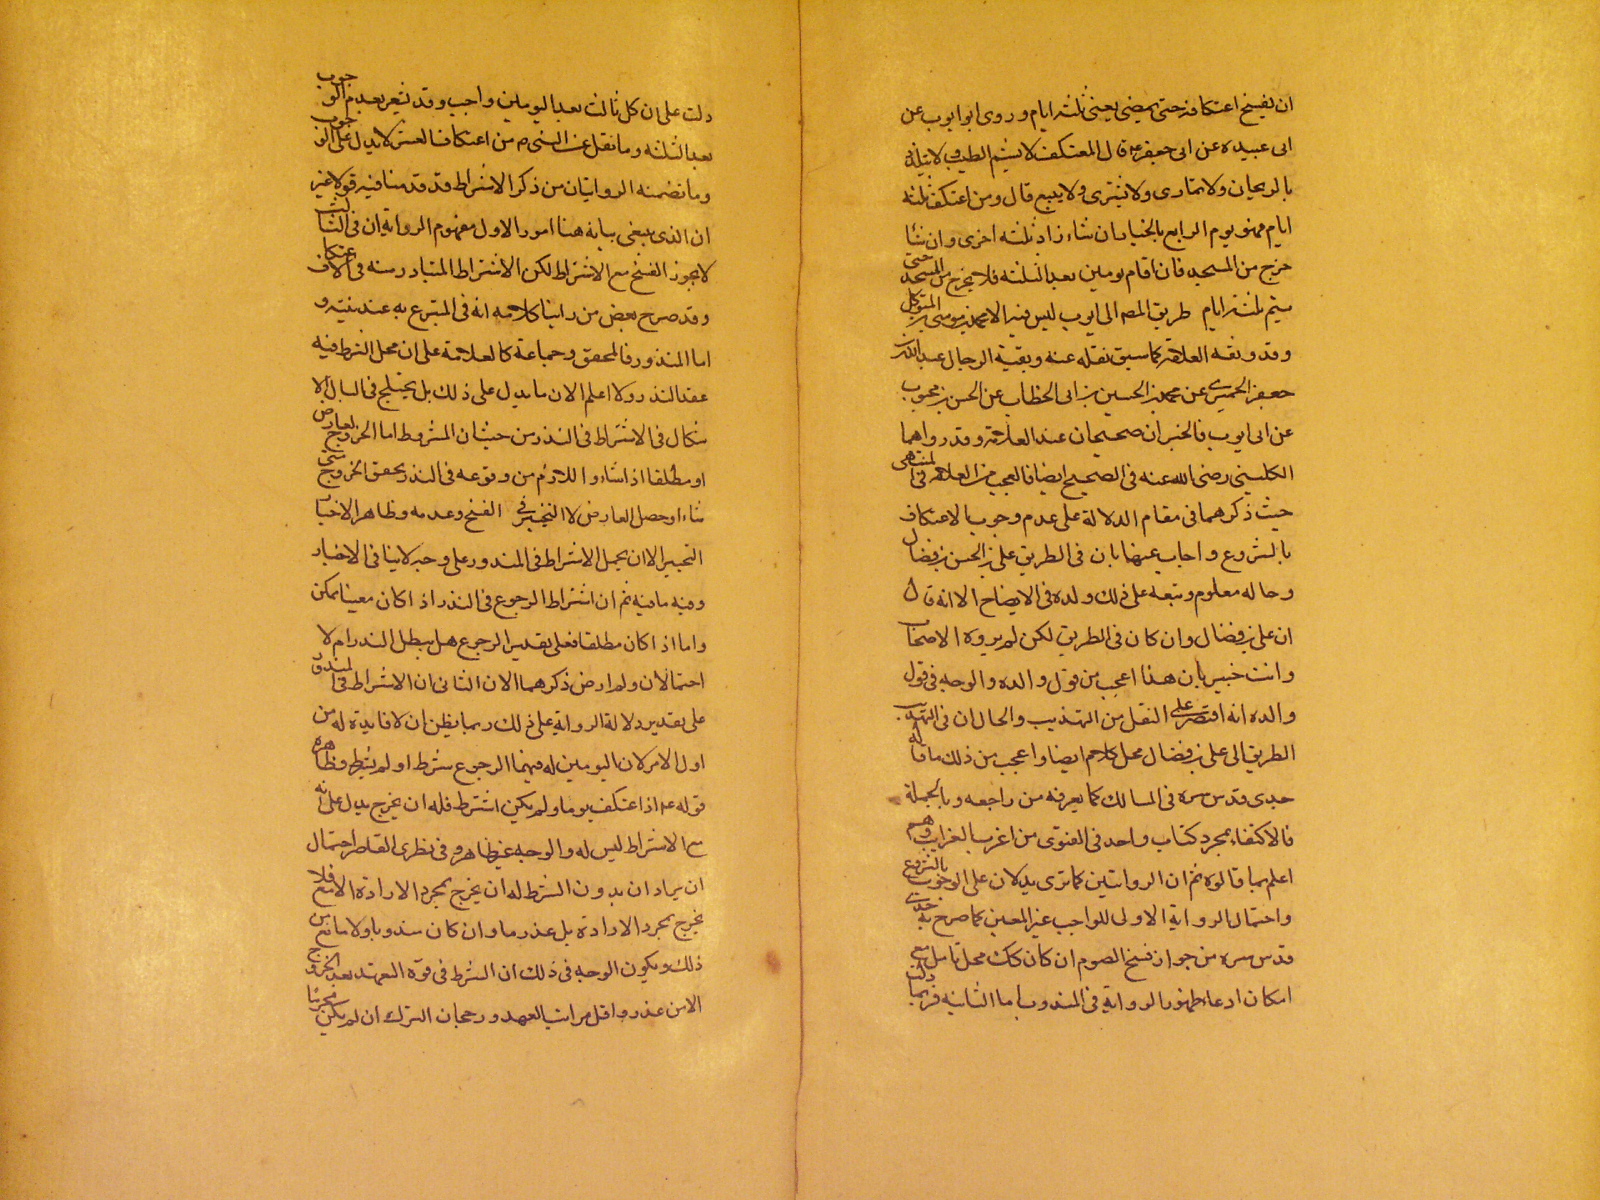 ان يفسخ اعتكافه حتى يمضى يعنى ثلثة ايام وروى ابو ايوب عن
ابى عبيده عن ابى جعفر ع قال المعتكف لا يشم الطيب ولا يتلذذ
بالريحان ولا يمارى ولا يشترى ولا يبيع قال ومن اعتكف ثلثة
ايام فهو يوم الرابع بالخيار ان شاء زاد ثلثة اخرى وان شاء
خرج من المسجد فان اقام يومين بعد الثلثة فلا يخرج من المسجد حتى
يتم ثلثة ايام طريق المص الى ايوب ليس فيه الا محمد بن موسى بن المتوكل
وقد وثقه العلامة كما سبق نقله عنه وبقية الرجال عبد الله بن
جعفر الحميرى عن محمد بن الحسين بن ابى الخطاب عن الحسن بن محبوب
عن ابى ايوب فالخبران صحيحان عند العلامة وقد رواهما
الكلينى رضى الله عنه فى الصحيح ايضا فالعجب من العلامة فى المنتهى
حيث ذكرهما فى مقام الدلالة على عدم وجوب الاعتكاف
بالشروع واجاب عنهما بان فى الطريق على بن الحسن بن فضال
وحاله معلوم وتبعه على ذلك ولده فى الايضاح الا انه قال
ان على بن فضال وان كان فى الطريق لكن لم يروه الاصحاب
وانت خبير بان هذا اعجب من قول والده والوجه فى قول
والده انه اقتصر على النقل من التهذيب والحال ان فى التهذيب
الطريق الى على بن فضال محل كلام ايضا واعجب من ذلك ما قاله
جدى قدس سره فى المسالك كما يعرفه من راجعه وبالجملة
فالاكتفاء بمجرد كتاب واحد فى الفتوى من اغرب الغرايب وهم
اعلم بما قالوه ثم ان الروايتين كما ترى يدلان على الوجوب بالشروع
واحتمال الرواية الاولى للواجب غير المعين كما صرح به جدى
قدس سره من جواز فسخ الصوم ان كان كك محل تامل مع
امكان ادعاء ظهور الرواية فى المندوب اما الثانيه فربما دلت
دلت على ان كل ثالث بعد اليومين واجب وقد يشعر بعدم الوجوب
بعد الثلثه وما نقل عن النبى ص من اعتكاف العشر لا يدل على الوجوب
وما تضمنه الروايتان من ذكر الاشتراط قد قدمنا فيه قولا غير
ان الذى ينبغى بيانه هنا امور الاول مفهوم الرواية ان فى الثالث
لا يجوز الفسخ مع الاشتراط لكن الاشتراط المتبادر منه فى الاعتكاف
وقد صرح بعض من راينا كلامه انه فى المتبرع به عند نيته و
اما المنذور فالمحقق وجماعة كالعلامة على ان محل الشرط فيه
عقد النذر ولا اعلم الان ما يدل على ذلك بل يختلج فى البال الا
شكال فى الاشتراط فى النذر من حيث ان المشروط اما الخروج لعارض
او مطلقا اذا شاء واللازم من وقوعه فى النذر تحقق الخروج متى
شاء او حصل العارض لا التخيير فى الفسخ وعدمه وظاهر الاخبار
التخيير الا ان يحمل الاشتراط فى المنذور على وجه لا ينافى الاخبار
وفيه ما فيه ثم ان اشتراط الرجوع فى النذر اذا كان معينا ممكن
واما اذا كان مطلقا فعلى تقدير الرجوع هل يبطل النذر ام لا
احتمالان ولم ار من ذكرهما الان الثانى ان الاشتراط فى المندوب
على تقدير دلالة الرواية على ذلك ربما يظن ان لا فايدة له من
اول الامر لان اليومين له فيهما الرجوع شرط او لم يشترط وظاهره
قوله ع اذا اعتكف يوما ولم يكن اشترط فله ان يخرج يدل على انه
مع الاشتراط ليس له والوجه غير ظاهر وفى نظرى القاصر احتمال
ان يراد ان بدون الشرط له ان يخرج بمجرد الارادة الا مع فلا
يخرج بمجرد الارادة بل عذر ما وان كان مندوبا ولا مانع من
ذلك ويكون الوجه فى ذلك ان الشرط فى قوة التعهد بعدم الخروج
الا من عذر واقل مراتب العهد ورجحان الترك ان لم يكن محرما